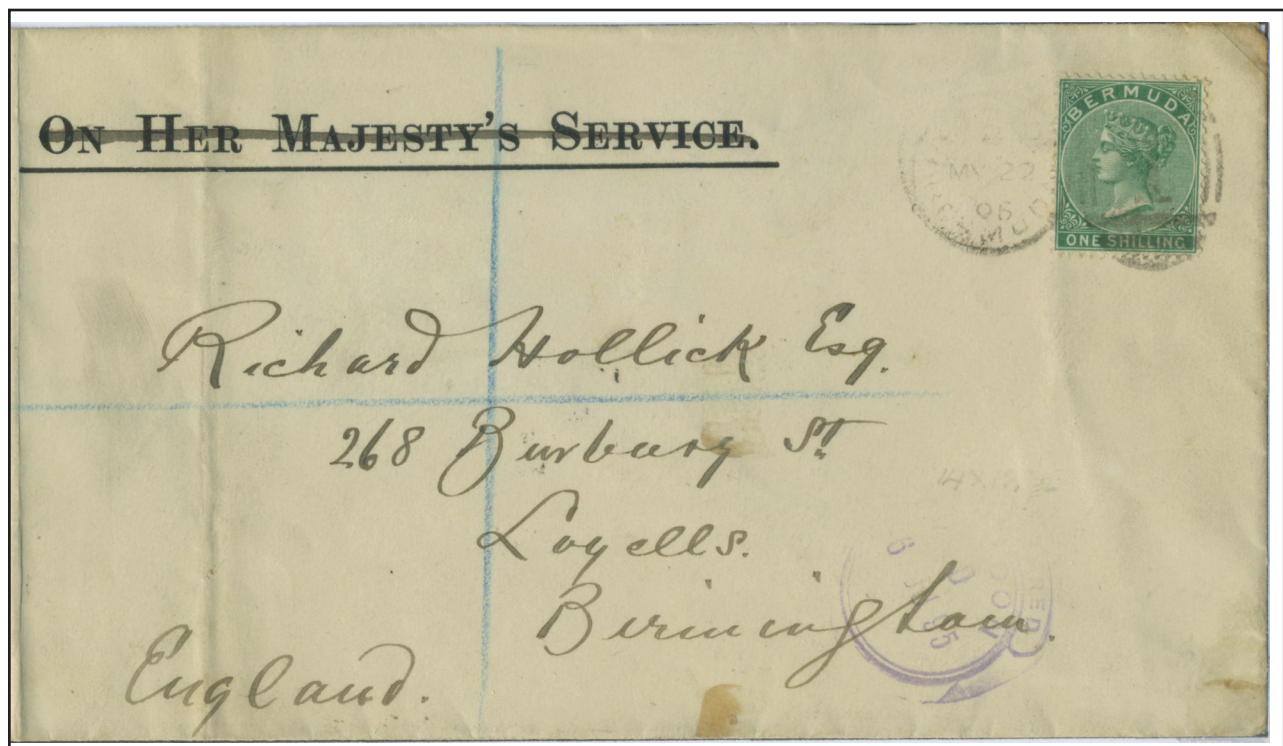 ON HER MAJESTY'S SERVICE.
BERMUDA
ONE SHILLING
MY 22
95
Richard Hollick Esq.
268 Burbury St
Lozells.
Birmingham.
England.